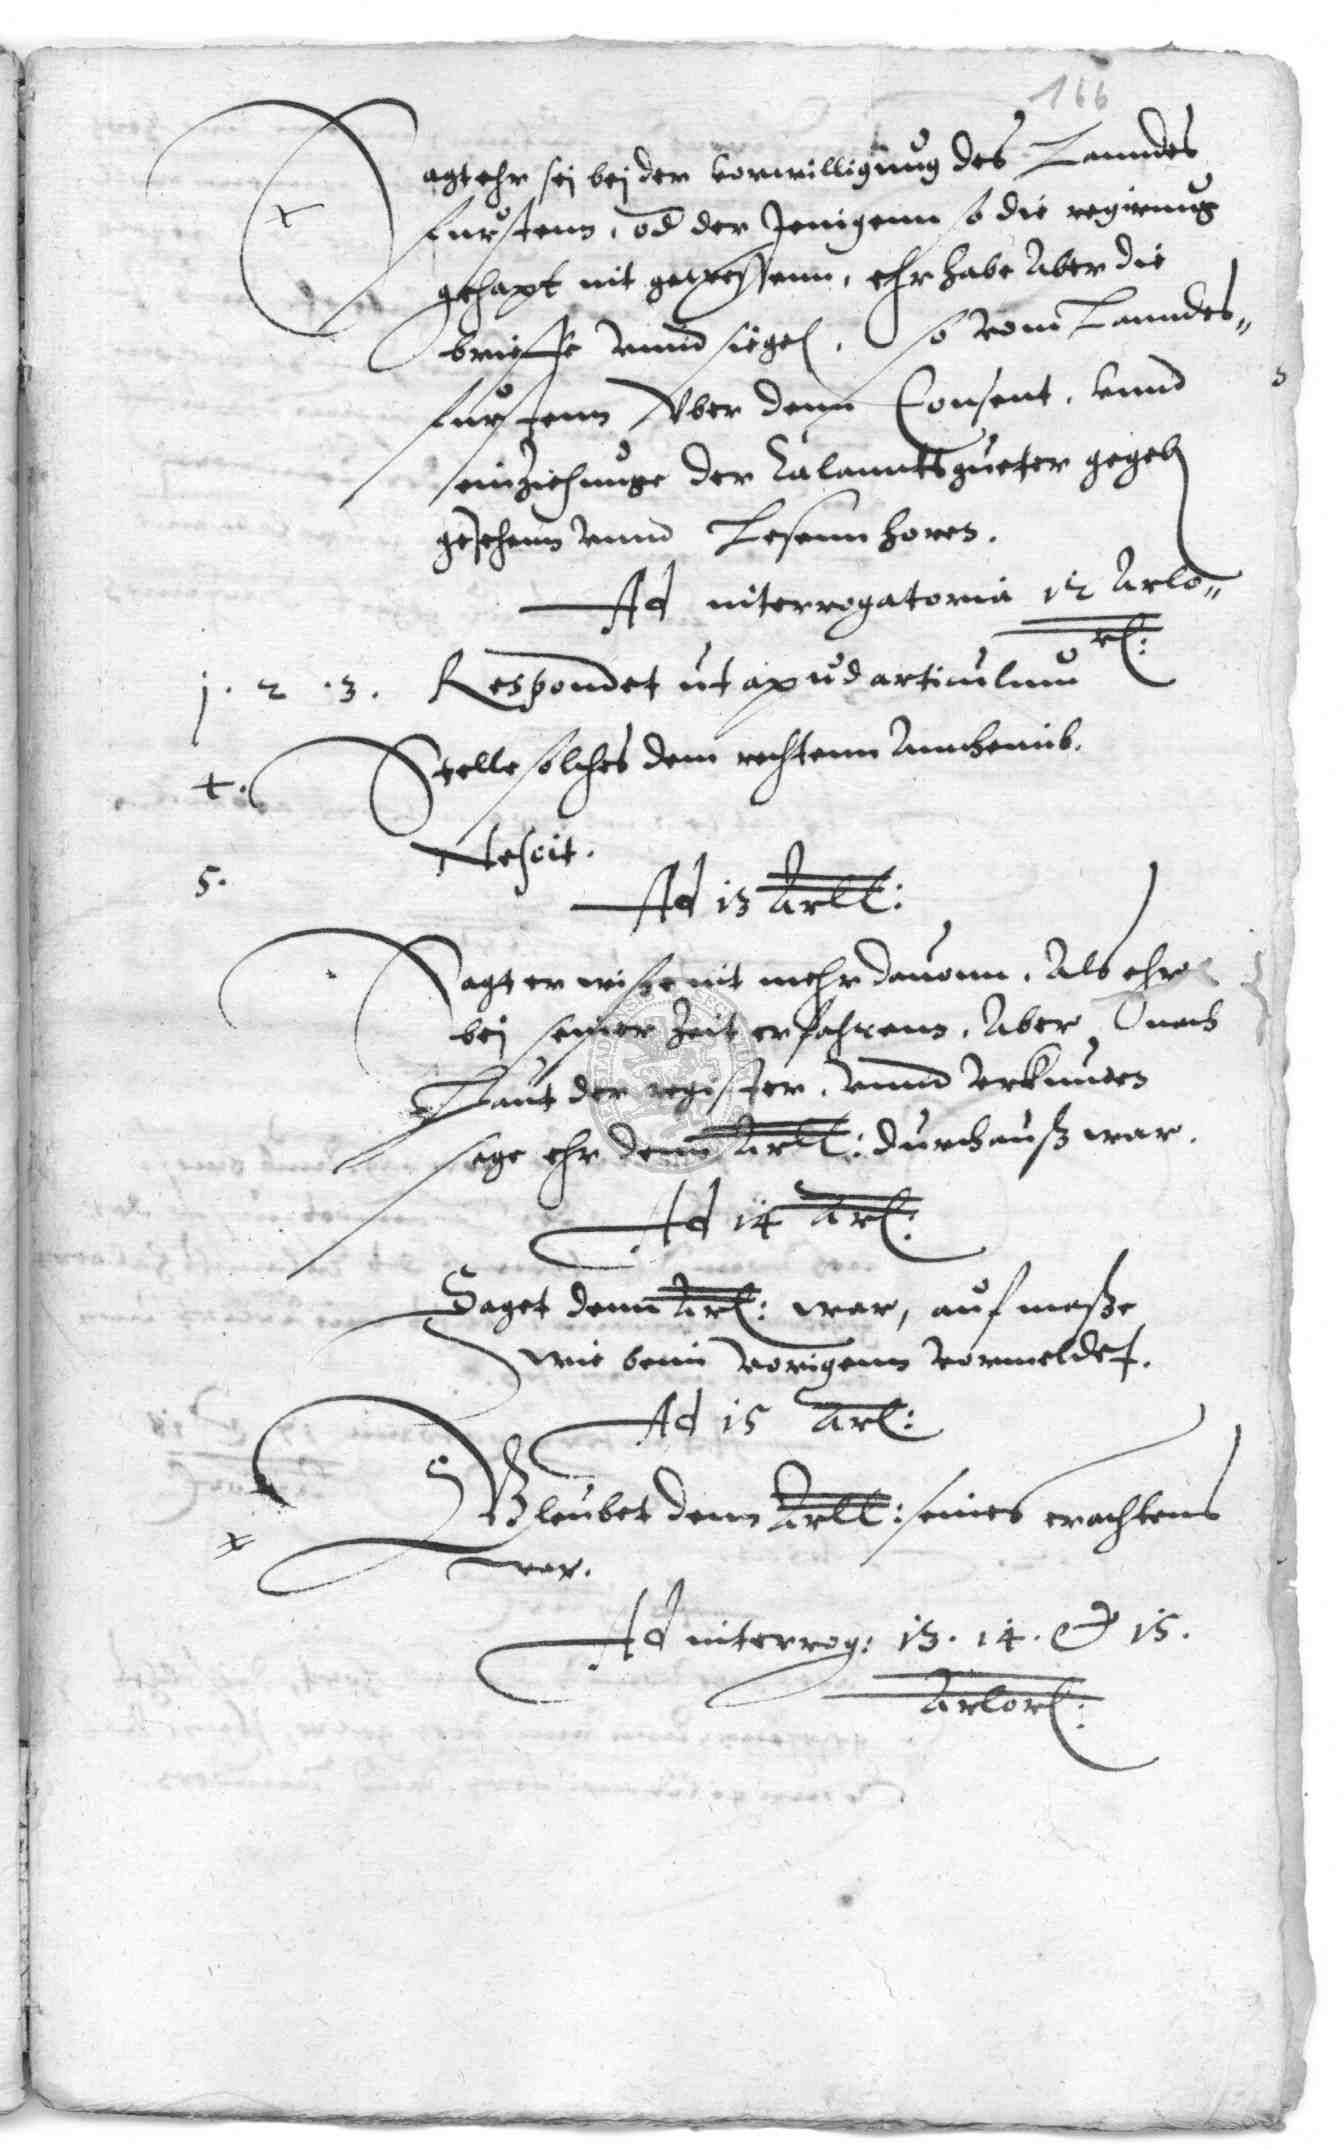 166
Sagt ehr sej bej der vorwilligung des Lanndes
fursten, od der Jenigenn so die regirung
gehapt nit gewessenn, ehr habe aber die
brieffe vnnd siegel, so vom Lanndes„
furstenn vber denn Consent, vnnd
einziehunge der Calanntsgueter gegeb
gesehenn vnnd Lesenn horen.
Ad interrogatoria 12 Arlo„
rl:
1. 2. 3. Respondet ut apud articulum
4. Stelle solches dem rechtenn Annheimb.
5. Nescit.
Ad 13 Arll:
Sagt er wisse nit mehr dauonn, Als ehr
bej seiner Zeit erfahrenn, Aber nach
Laut der register, vnnd vrkunden
sage ehr denn Arll: durchauß war.
Ad 14 Arl:
Saget denn Arl: war, auf masse
wie beim vorigenn vormeldet.
Ad 15 Arl:
Gleubet denn Arll: seines erachtens
war.
Ad interrog: 13. 14. & 15.
Arlorl: